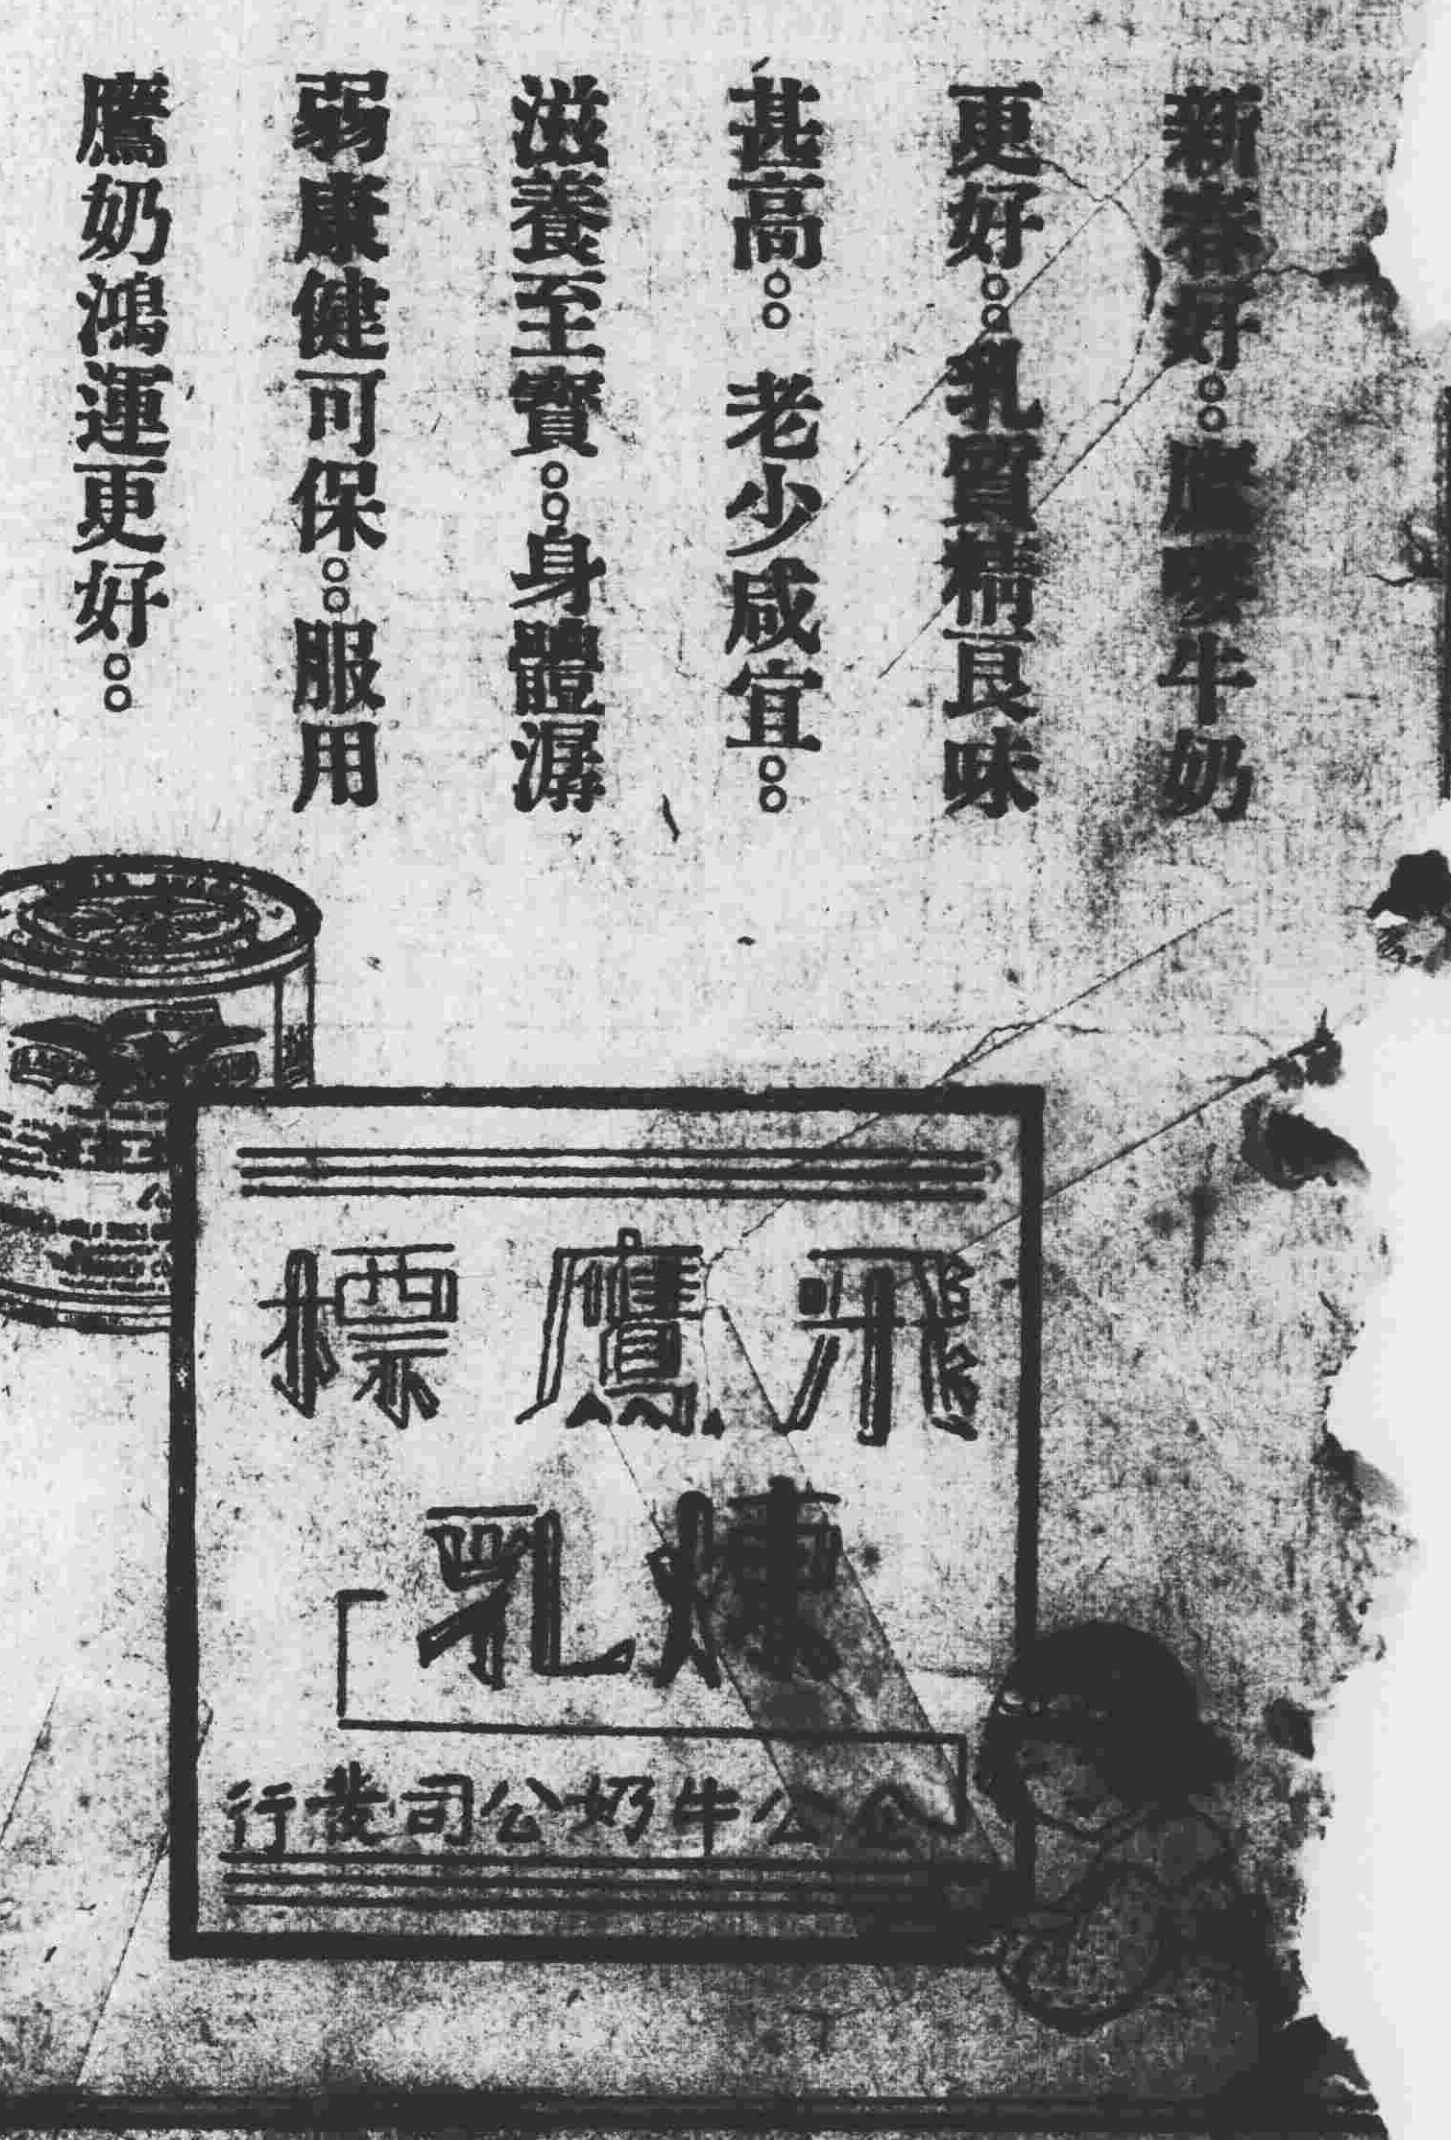 新春好。。鷹嘜牛奶
更好。。乳質精良味
甚高。。老少咸宜。。
滋養至寶。。身體潺
弱康健可保。。服用
鷹奶鴻運更好。。
飛鷹標
煉乳
公牛奶公司發行